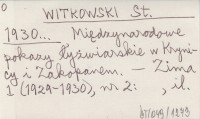 0
WITKOWSKI St.
1930... Międzynarodowe
pokazy łyżwiarskie w Kryni-
cy i Zakopanem. — Zima
1 (1929-1930), nr 2:      , il.